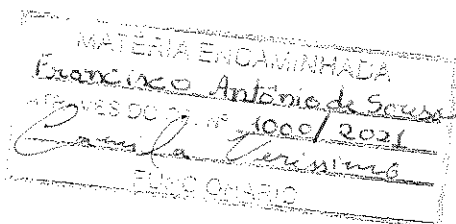 MATÉRIA ENCAMINHADA
Francisco Antônio de Sousa
ATRAVÉS DO Nº 1000/2021
Camila Verissimo
FUNCIONÁRIO